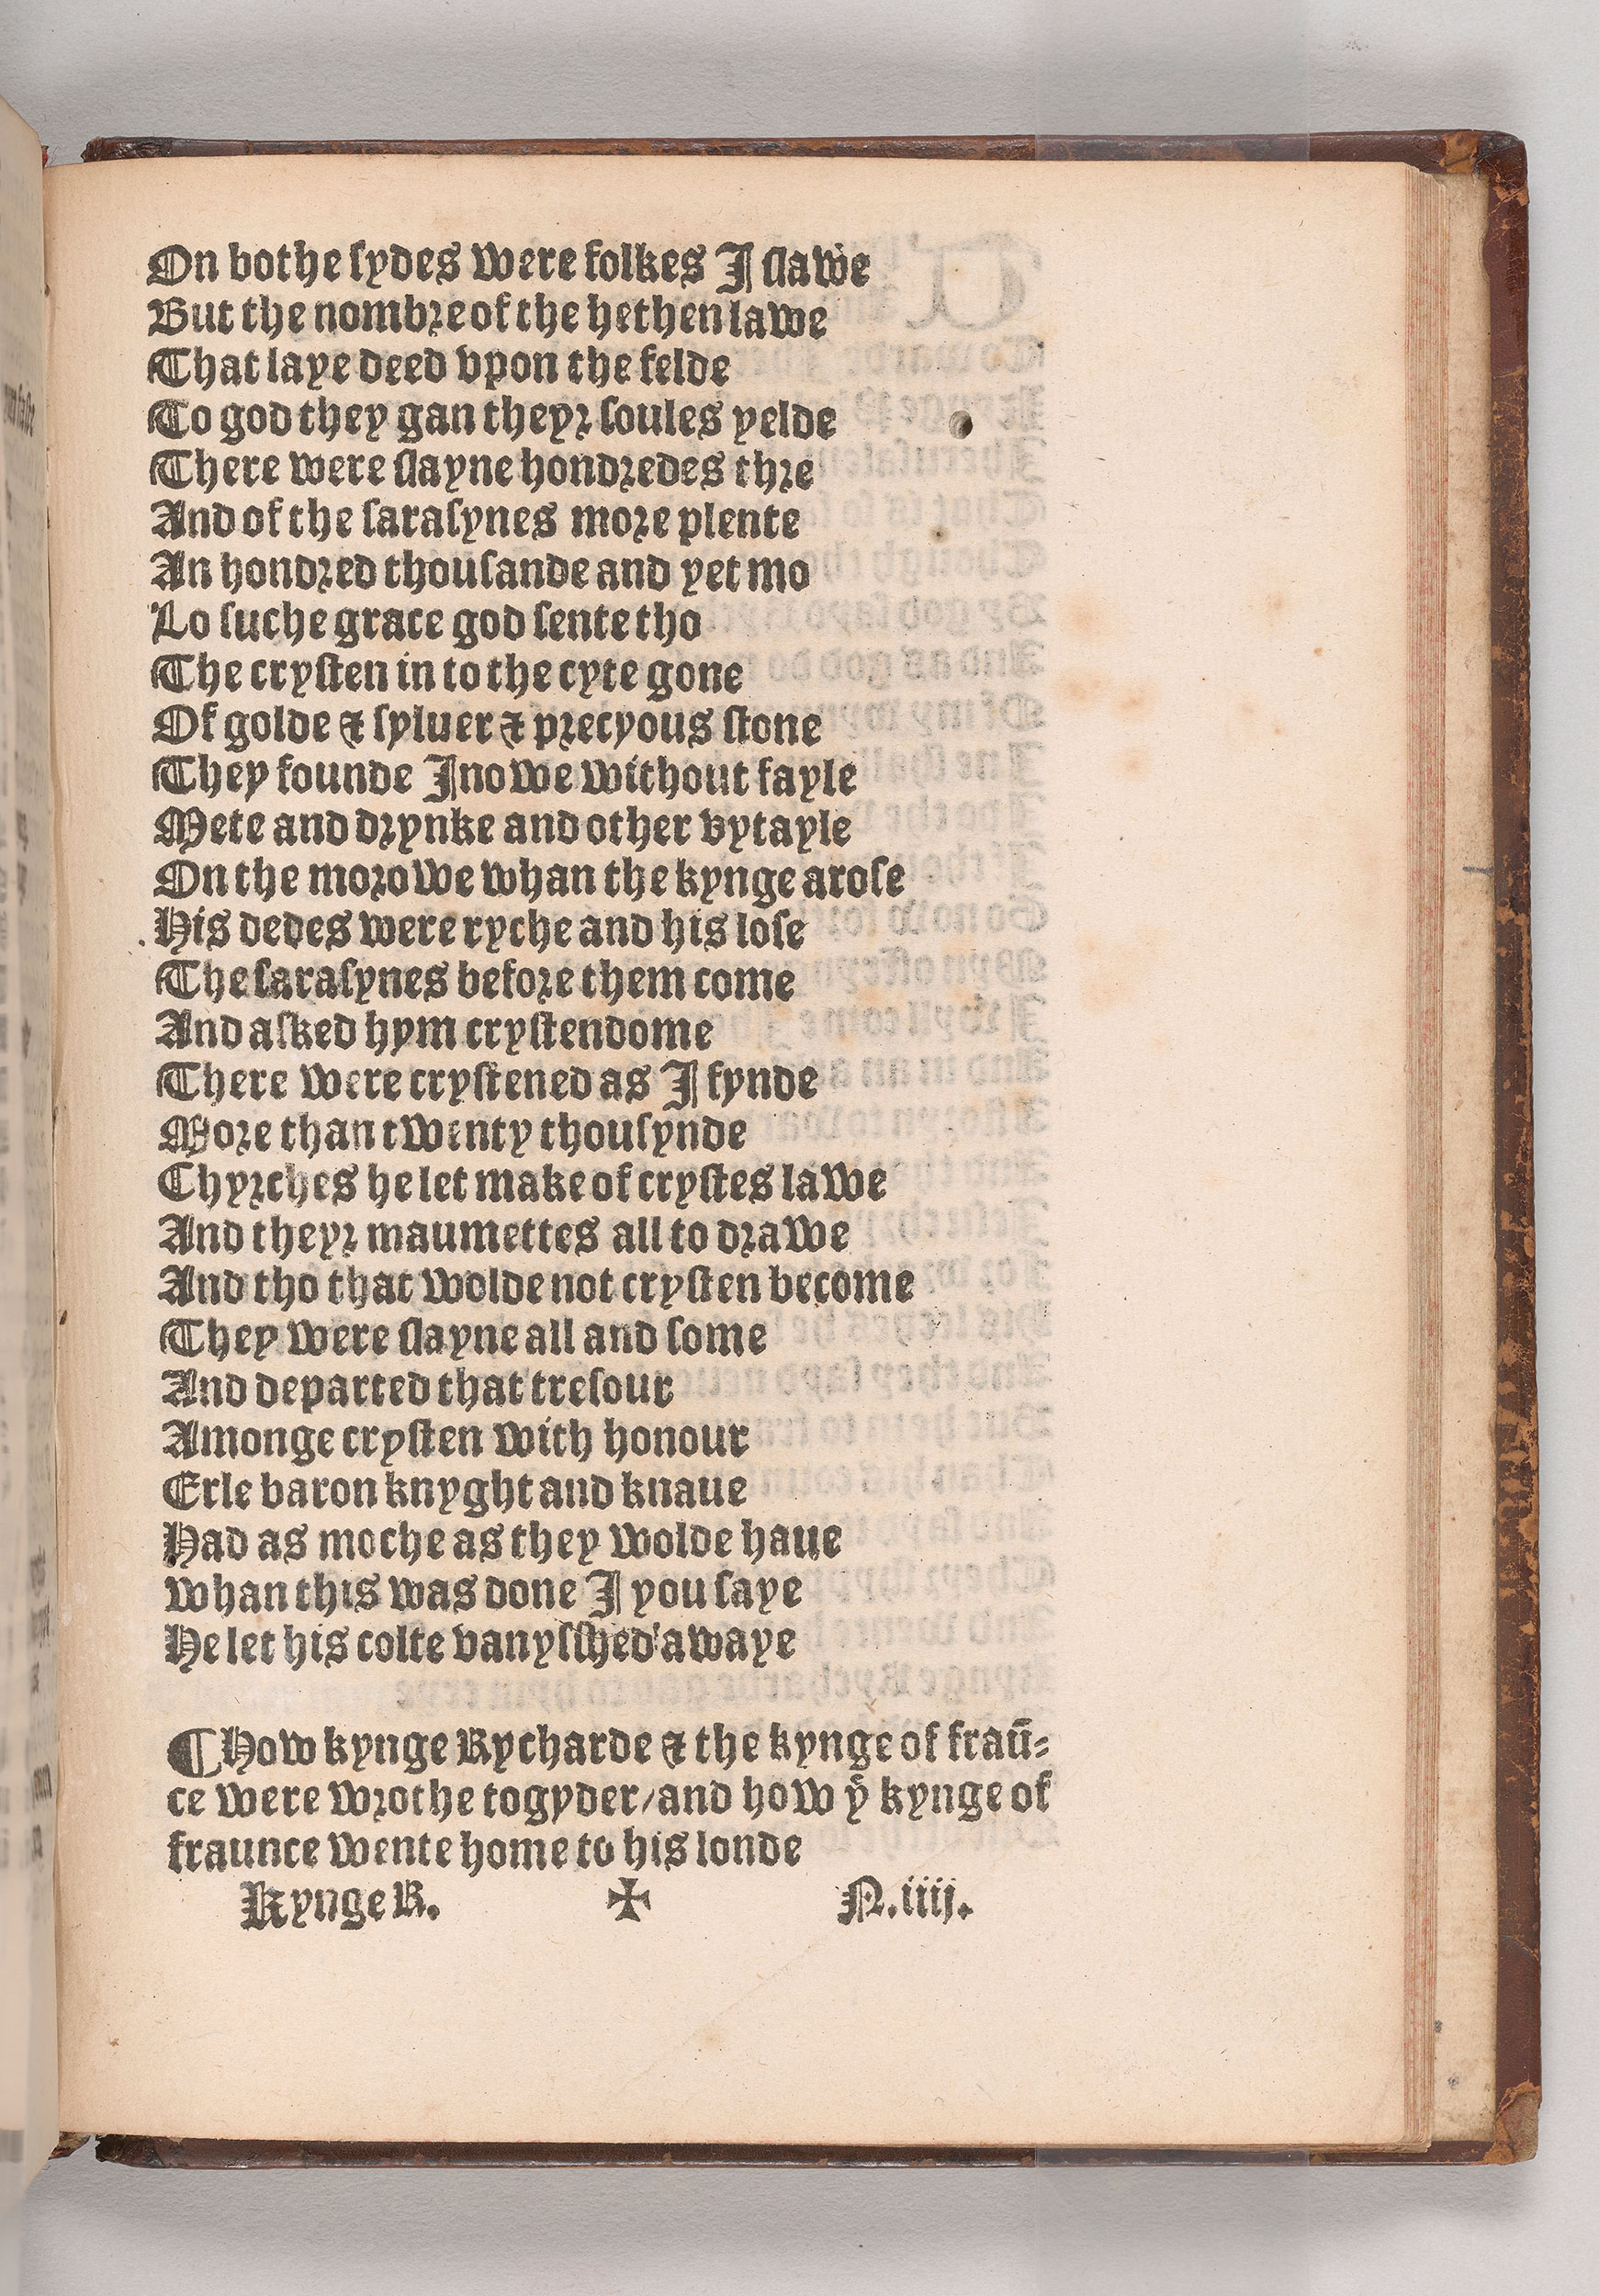 On bothe ſydes were folkes I ſlawe
But the nombre of the hethen lawe
That laye deed vpon the felde
To god they gan theyr ſoules yelde
There were ſlayne hondredes thre
And of the ſaraſynes more plente
An hondred thouſande and yet mo
Lo ſuche grace god ſente tho
The cryſten in to the cyte gone
Of golde & ſyluer & precyous ſtone
They founde Inowe without fayle
Mete and drynke and other vytayle
On the morowe whan the kynge aroſe
His dedes were ryche and his loſe
The ſaraſynes before them come
And aſked hym cryſtendome
There were cryſtened as I fynde
More than twenty thouſynde
Chyrches he let make of cryſtes lawe
And theyr maumettes all to drawe
And tho that wolde not cryſten become
They were ſlayne all and ſome
And departed that treſour
Amonge cryſten with honour
Erle baron knyght and knaue
Had as moche as they wolde haue
whan this was done I you ſaye
He let his colte vanyſſhed awaye
¶ How kynge Rycharde & the kynge of fraū⸗
ce were wrothe togyder/and how yͤ kynge of
fraunce wente home to his londe
Kynge R. ✠ N.iiij.